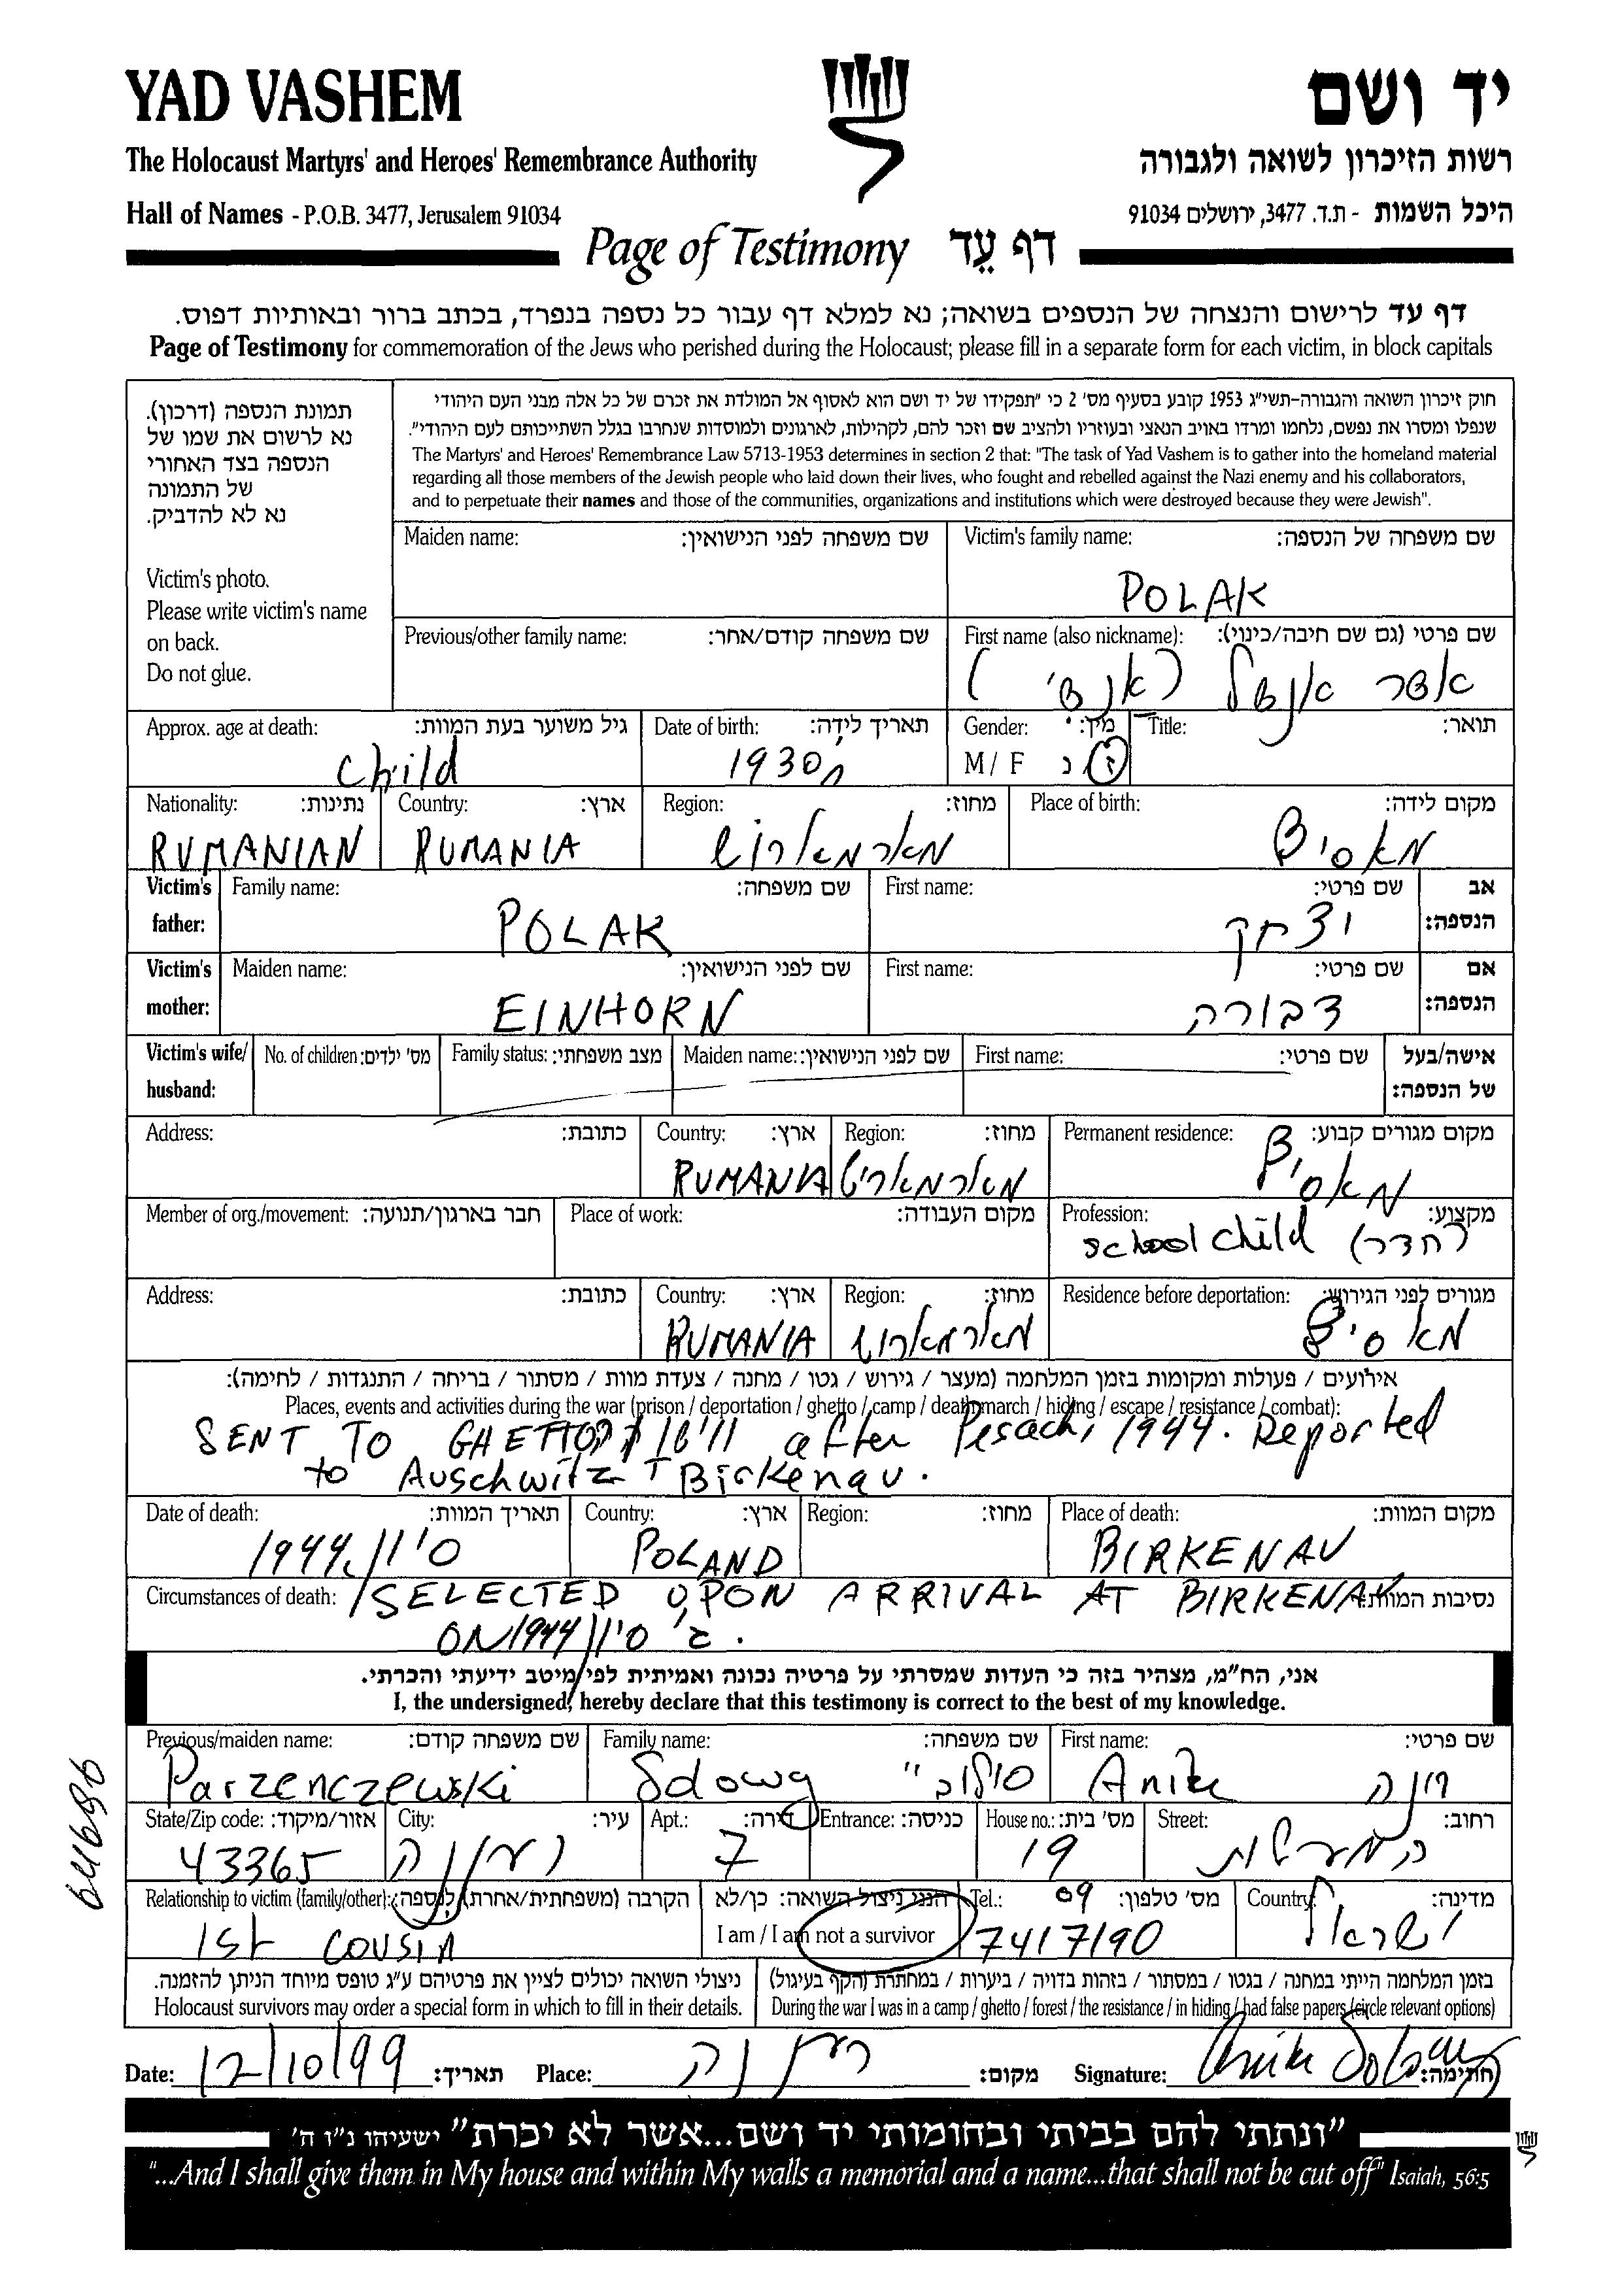 YAD VASHEM
יד ושם
The Holocaust Martyrs' and Heroes' Remembrance Authority
רשות הזיכרון לשואה ולגבורה
Hall of Names - P.O.B. 3477, Jerusalem 91034
היכל השמות - ת.ד. 3477, ירושלים 91034
Page of Testimony דף עֵד
דף עד לרישום והנצחה של הנספים בשואה; נא למלא דף עבור כל נספה בנפרד, בכתב ברור ובאותיות דפוס.
Page of Testimony for commemoration of the Jews who perished during the Holocaust; please fill in a separate form for each victim, in block capitals
תמונת הנספה (דרכון).
נא לרשום את שמו של
הנספה בצד האחורי
של התמונה
נא לא להדביק.
Victim's photo.
Please write victim's name
on back.
Do not glue.
חוק זיכרון השואה והגבורה-תשי"ג 1953 קובע בסעיף מס' 2 כי "תפקידו של יד ושם הוא לאסוף אל המולדת את זכרם של כל אלה מבני העם היהודי
שנפלו ומסרו את נפשם, נלחמו ומרדו באויב הנאצי ובעוזריו ולהציב שם וזכר להם, לקהילות, לארגונים ולמוסדות שנחרבו בגלל השתייכותם לעם היהודי".
The Martyrs' and Heroes' Remembrance Law 5713-1953 determines in section 2 that: "The task of Yad Vashem is to gather into the homeland material
regarding all those members of the Jewish people who laid down their lives, who fought and rebelled against the Nazi enemy and his collaborators,
and to perpetuate their names and those of the communities, organizations and institutions which were destroyed because they were Jewish".
Maiden name: שם משפחה לפני הנישואין:
Victim's family name: שם משפחה של הנספה:
POLAK
Previous/other family name: שם משפחה קודם/אחר:
First name (also nickname): שם פרטי (גם שם חיבה/כינוי):
אשר אנשל (אנשי)
Approx. age at death: גיל משוער בעת המוות:
child
Date of birth: תאריך לידה:
1930
Gender: מין:
M / F ז / נ
Title: תואר:
Nationality: נתינות:
RUMANIAN
Country: ארץ:
RUMANIA
Region: מחוז:
מארמארוש
Place of birth: מקום לידה:
מאסיב
Victim's father: Family name: שם משפחה:
POLAK
First name: שם פרטי: אב הנספה:
יצחק
Victim's mother: Maiden name: שם לפני הנישואין:
EINHORN
First name: שם פרטי: אם הנספה:
דבורה
Victim's wife/ husband: No. of children: מס' ילדים: Family status: מצב משפחתי: Maiden name: שם לפני הנישואין: First name: שם פרטי: אישה/בעל של הנספה:
Address: כתובת:
Country: ארץ:
RUMANIA
Region: מחוז:
מארמארוש
Permanent residence: מקום מגורים קבוע:
מאסיב
Member of org./movement: חבר בארגון/תנועה:
Place of work: מקום העבודה:
Profession: מקצוע:
school child (חדר)
Address: כתובת:
Country: ארץ:
RUMANIA
Region: מחוז:
מארמארוש
Residence before deportation: מגורים לפני הגירוש:
מאסיב
אירועים / פעולות ומקומות בזמן המלחמה (מעצר / גירוש / גטו / מחנה / צעדת מוות / מסתור / בריחה / התנגדות / לחימה):
Places, events and activities during the war (prison / deportation / ghetto / camp / death march / hiding / escape / resistance / combat):
SENT TO GHETTO after Pesach, 1944. Deported
to Auschwitz Birkenau.
Date of death: תאריך המוות:
סיון 1944
Country: ארץ:
POLAND
Region: מחוז:
Place of death: מקום המוות:
BIRKENAU
Circumstances of death: נסיבות המוות:
SELECTED UPON ARRIVAL AT BIRKENAU
ON ב' סיון 1944.
אני, הח"מ, מצהיר בזה כי העדות שמסרתי על פרטיה נכונה ואמיתית לפי מיטב ידיעתי והכרתי.
I, the undersigned, hereby declare that this testimony is correct to the best of my knowledge.
Previous/maiden name: שם משפחה קודם:
Parzenczewski
Family name: שם משפחה:
Solowy
First name: שם פרטי:
Anita
State/Zip code: אזור/מיקוד:
43365
City: עיר:
רעננה
Apt.: דירה:
7
Entrance: כניסה:
House no.: מס' בית:
19
Street: רחוב:
Relationship to victim (family/other): הקרבה (משפחתית/אחרת) לנספה:
1st COUSIN
הנני ניצול השואה: כן/לא
I am / I am not a survivor
Tel.: מס' טלפון:
09
7417190
Country: מדינה:
ישראל
ניצולי השואה יכולים לציין את פרטיהם ע"ג טופס מיוחד הניתן להזמנה.
Holocaust survivors may order a special form in which to fill in their details.
בזמן המלחמה הייתי במחנה / בגטו / במסתור / בזהות בדויה / ביערות / במחתרת (הקף בעיגול)
During the war I was in a camp / ghetto / forest / the resistance / in hiding / had false papers (circle relevant options)
Date: 12/10/99 תאריך: Place: רעננה מקום: Signature: חתימה:
"ונתתי להם בביתי ובחומותי יד ושם...אשר לא יכרת" ישעיהו נ"ו ה'
"...And I shall give them in My house and within My walls a memorial and a name...that shall not be cut off" Isaiah, 56:5